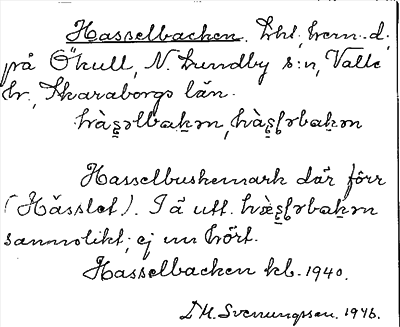 Hasselbacken. Lht, hem.-d.
på Ökull, N. Lundby s:n, Valle
hr, Skaraborgs län.
Hasselbuskemark där förr
(Hässlet). I ä utt.
sannolikt, ej nu hört.
Hasselbacken kb. 1940.
D.H. Svenungsson. 1946.